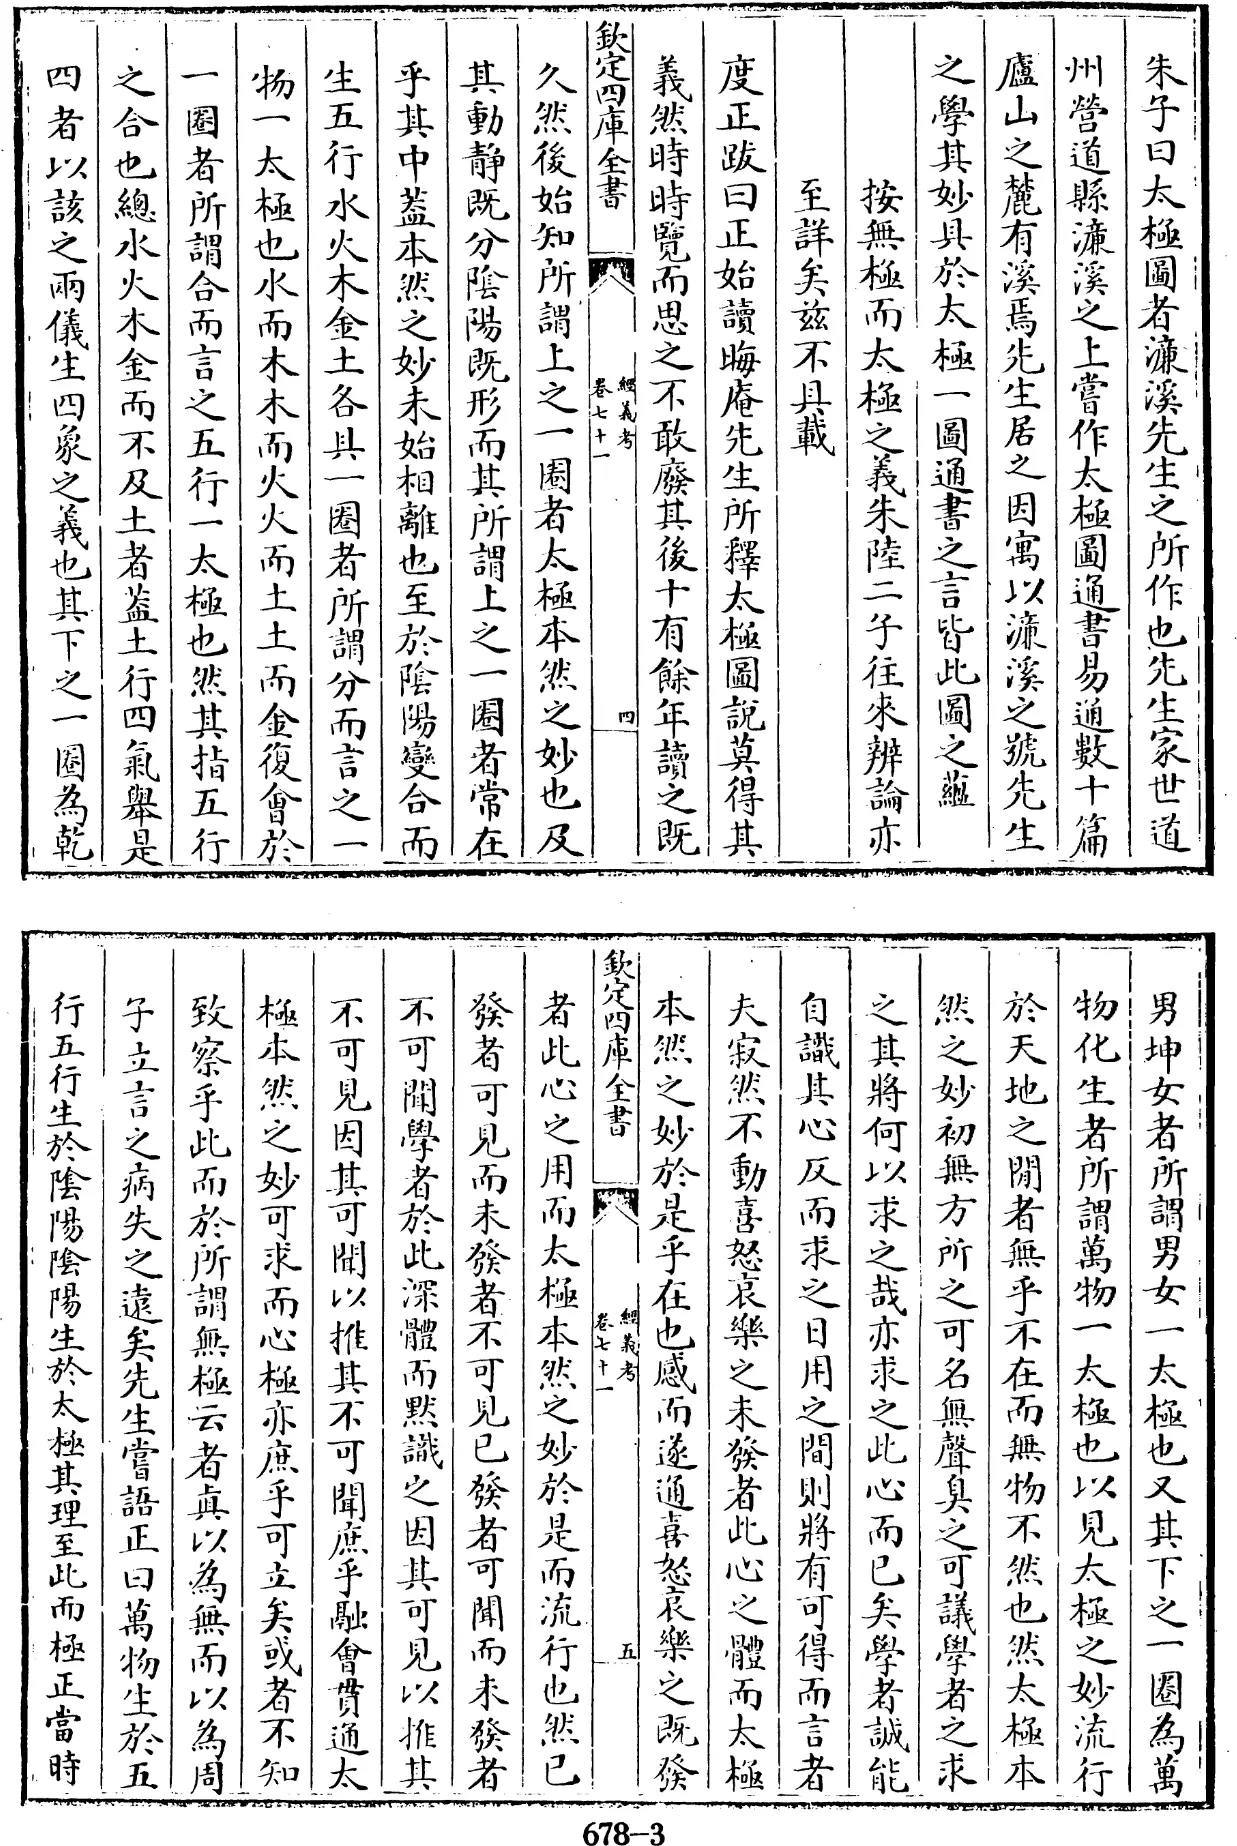 朱子曰太極圖者濂溪先生之所作也先生家世道
州營道縣濂溪之上嘗作太極圖通書易通數十篇
廬山之麓有溪焉先生居之因寓以濂溪之號先生
之學其妙具於太極一圖通書之言皆此圖之蘊
按無極而太極之義朱陸二子往來辨論亦
至詳矣茲不具載
度正跋曰正始讀晦庵先生所釋太極圖說莫得其
義然時時覽而思之不敢廢其後十有餘年讀之既
欽定四庫全書
經義考
卷七十一
四
久然後始知所謂上之一圈者太極本然之妙也及
其動靜既分陰陽既形而其所謂上之一圈者常在
乎其中蓋本然之妙未始相離也至於陰陽變合而
生五行水火木金土各具一圈者所謂分而言之一
物一太極也水而木木而火火而土土而金復會於
一圈者所謂合而言之五行一太極也然其指五行
之合也總水火木金而不及土者蓋土行四氣舉是
四者以該之兩儀生四象之義也其下之一圈為乾
男坤女者所謂男女一太極也又其下之一圈為萬
物化生者所謂萬物一太極也以見太極之妙流行
於天地之閒者無乎不在而無物不然也然太極本
然之妙初無方所之可名無聲臭之可議學者之求
之其將何以求之哉亦求之此心而已矣學者誠能
自識其心反而求之日用之間則將有可得而言者
夫寂然不動喜怒哀樂之未發者此心之體而太極
本然之妙於是乎在也感而遂通喜怒哀樂之既發
欽定四庫全書
經義考
卷七十一
五
者此心之用而太極本然之妙於是而流行也然已
發者可見而未發者不可見已發者可聞而未發者
不可聞學者於此深體而默識之因其可見以推其
不可見因其可聞以推其不可聞庶乎融會貫通太
極本然之妙可求而心極亦庶乎可立矣或者不知
致察乎此而於所謂無極云者真以為無而以為周
子立言之病失之遠矣先生嘗語正曰萬物生於五
行五行生於陰陽陰陽生於太極其理至此而極正當時
678-3